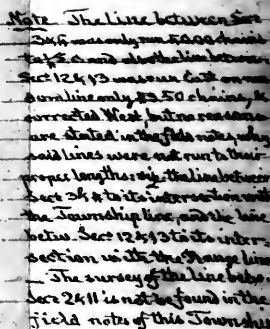 Note The line between Secs
3 & 4 was only run 50.00 chains
to ¼ S.c and also the line between
Secs 12 & 13 was run East on ran-
dom line only 83.50 chains, &
corrected West, but no reasons
are stated in the field notes, why
said lines were not run to their
proper lengths: viz. the line between
Secs 3 & 4 to its intersection with
the Township line, and the line
betw. Secs 12 & 13 to its inter-
section with the Range line
The survey of the line betw.
Secs 2 & 11 is not be found in the
field notes of this Township